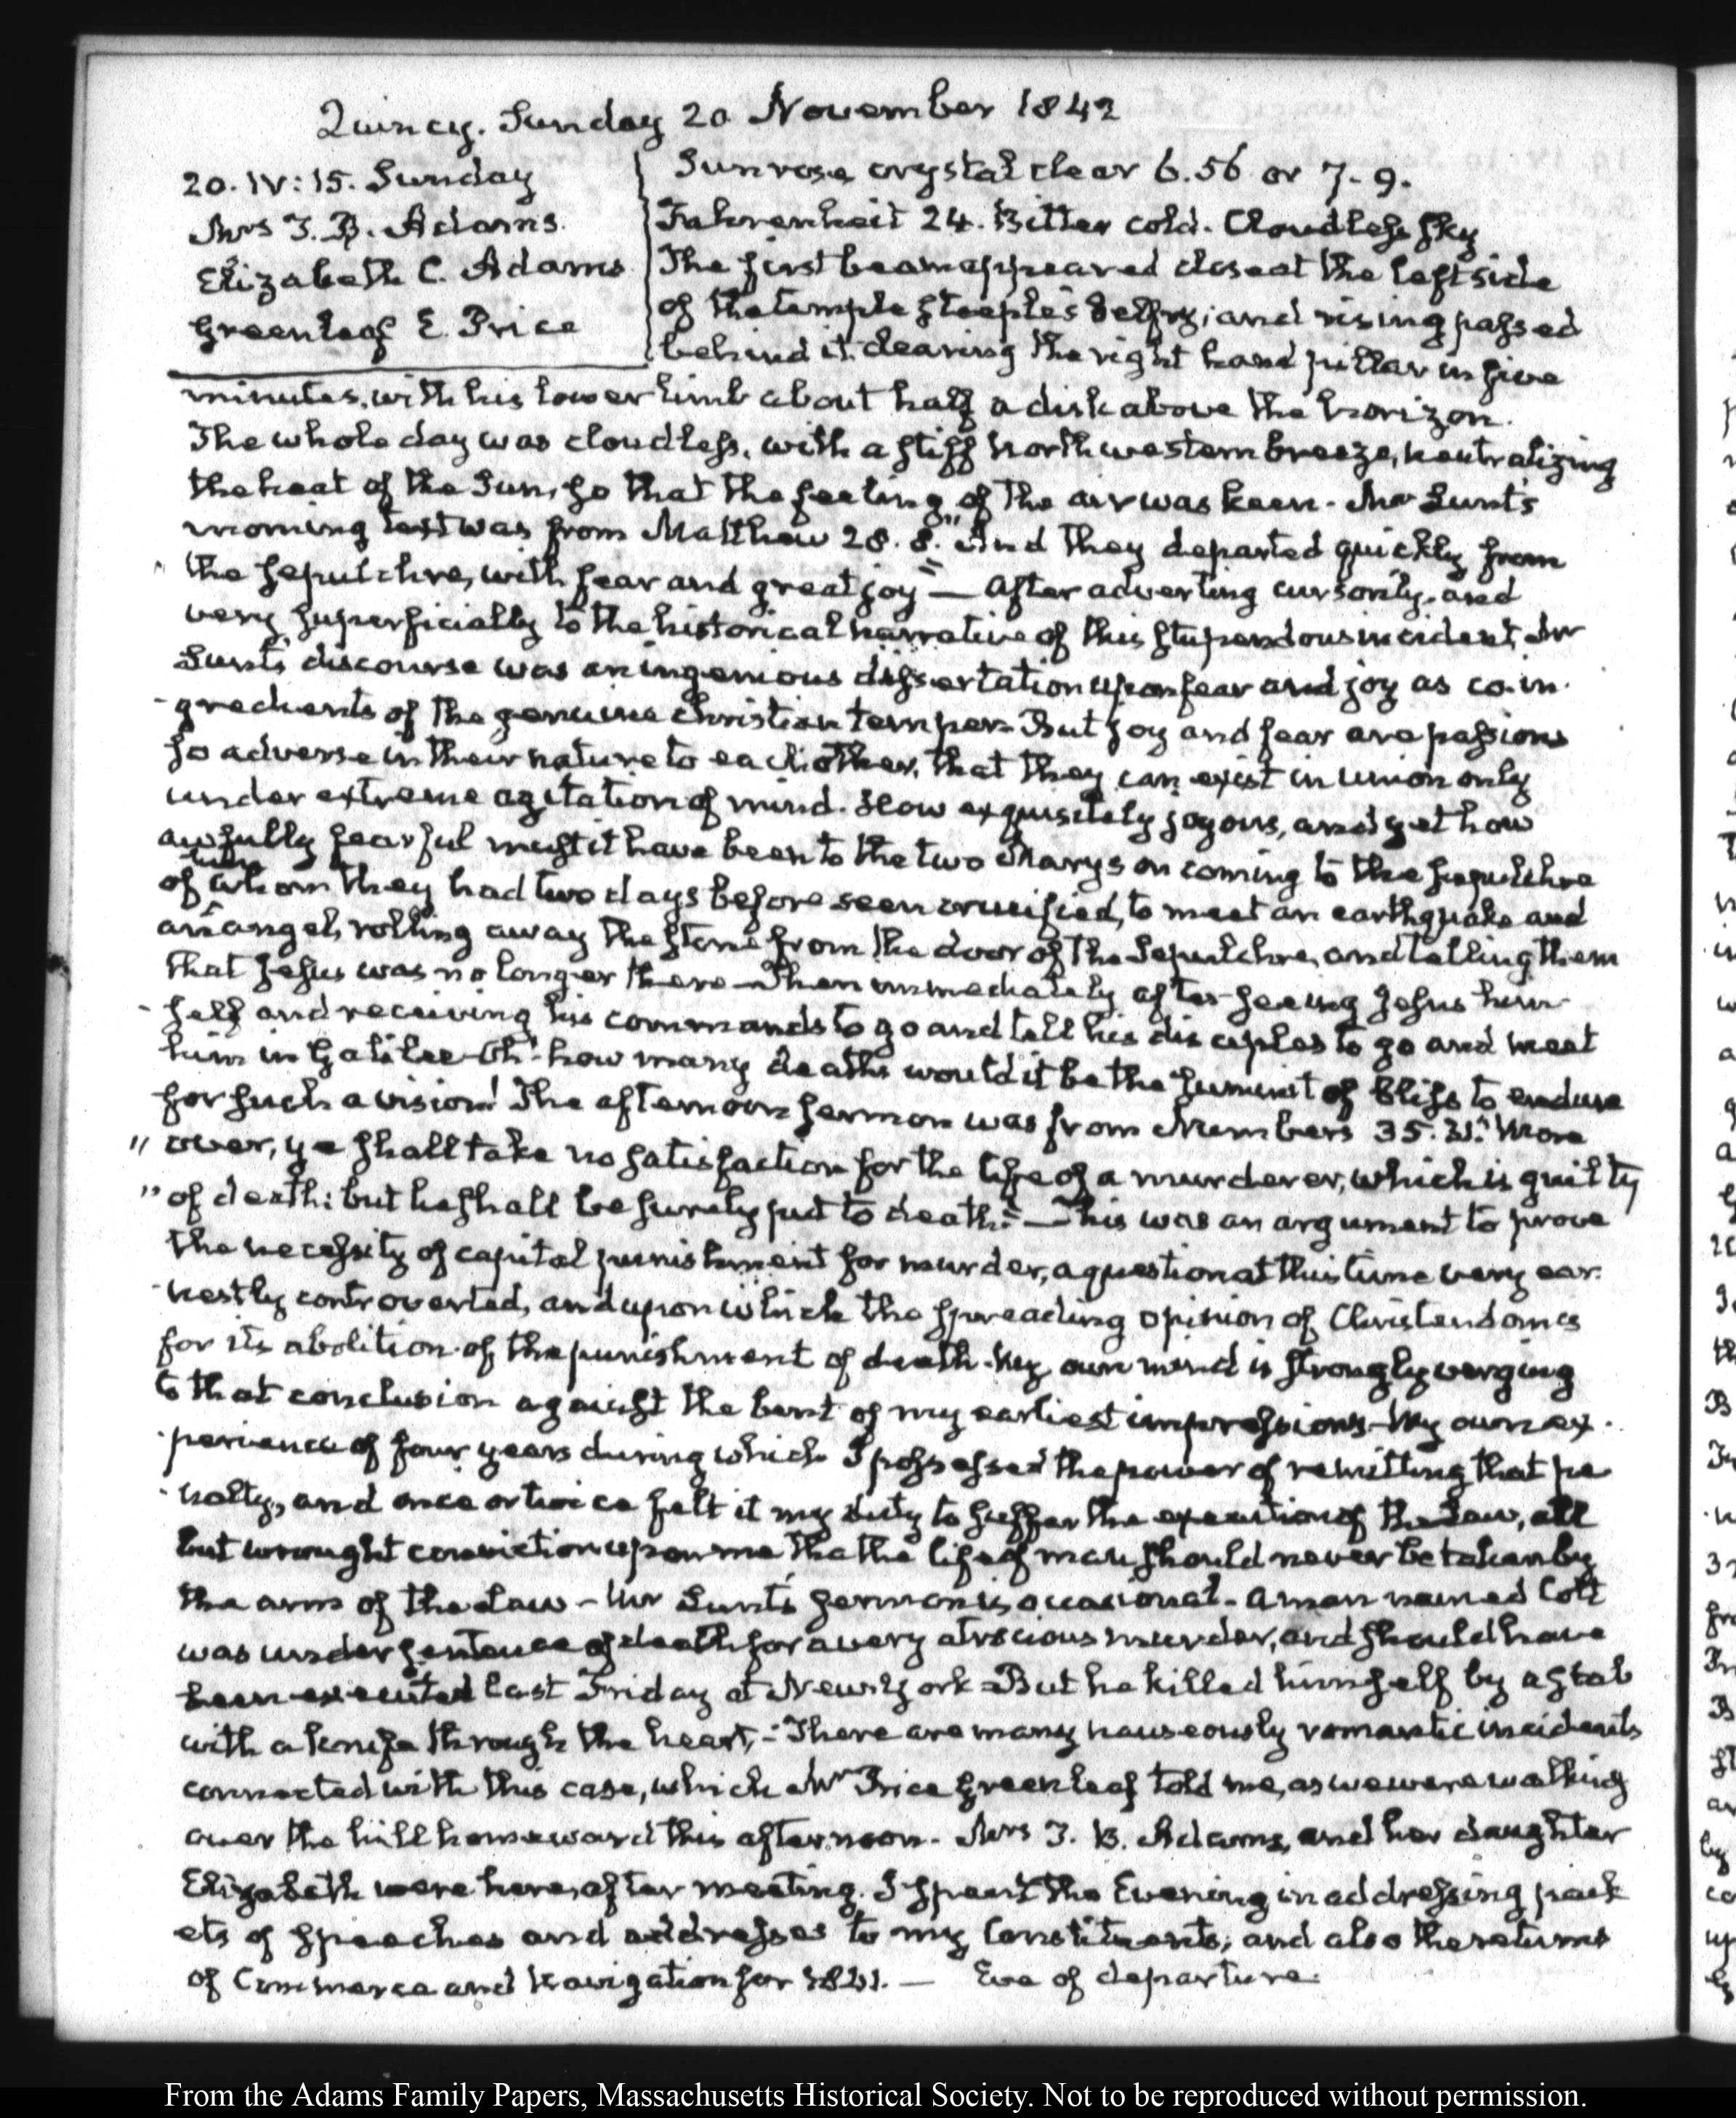 Quincy. Sunday 20 November 1842
20. IV: 15. Sunday
Mrs T. B. Adams.
Elizabeth C. Adams
Greenleaf E. Price
Sun rose crystal clear 6.56 or 7-9.
Fahrenheit 24. Bitter cold. Cloudless sky
The first beam appeared close at the left side
of the temple steeple's belfry; and rising passed
behind it clearing the right hand pillar in five
minutes, with his lower limb about half a disk above the horizon.
The whole day was cloudless, with a stiff North western breeze, neutralizing
the heat of the Sun, so that the feeling of the air was keen. Mr Lunt's
morning text was from Matthew 28. 8. "And they departed quickly from
" the sepulchre, with fear and great joy" — After adverting cursorily, and
very superficially to the historical narrative of this stupendous incident, Mr
Lunt's discourse was an ingenious dissertation upon fear and joy as co-in-
-gredients of the genuine christian temper. But joy and fear are passions
so adverse in their nature to each other, that they can exist in union only
under extreme agitation of mind. How exquisitely joyous, and yet how
awfully fearful must it have been to the two Marys on coming to the sepulchre
of him whom they had two days before seen crucified, to meet an earthquake and
an angel, rolling away the stone from the door of the Sepulchre, and telling them
that Jesus was no longer there - Then immediately after seeing Jesus him-
-self and receiving his commands to go and tell his disciples to go and meet
him in Galilee - Oh! how many deaths would it be the summit of bliss to endure
for such a vision! The afternoon sermon was from Numbers 35. 31. "More
" over, ye shall take no satisfaction for the life of a murderer, which is guilty
" of death: but he shall be surely put to death." — This was an argument to prove
the necessity of capital punishment for murder, a question at this time very ear-
-nestly controverted, and upon which the spreading opinion of Christendom is
for its abolition of the punishment of death. My own mind is strongly verging
to that conclusion against the bent of my earliest impressions - My own ex-
-perience of four years during which I possessed the power of remitting that pe
-nalty, and once or twice felt it my duty to suffer the execution of the Law, all
but wrought conviction upon me that the life of man should never be taken by
the arm of the Law - Mr Lunt's sermon is occasional. A man named Colt
was under sentence of death for a very atrocious murder, and should have
been executed last Friday at New-York - But he killed himself by a stab
with a knife through the heart, - There are many nauseously romantic incidents
connected with this case, which Mr Price Greenleaf told me, as we were walking
over the hill homeward this afternoon. Mrs T. B. Adams, and her daughter
Elizabeth were here, after meeting. I spent the Evening in addressing pack
ets of speeches and addresses to my Constituents; and also the returns
of Commerce and Navigation for 1841. — Eve of departure.
From the Adams Family Papers, Massachusetts Historical Society. Not to be reproduced without permission.